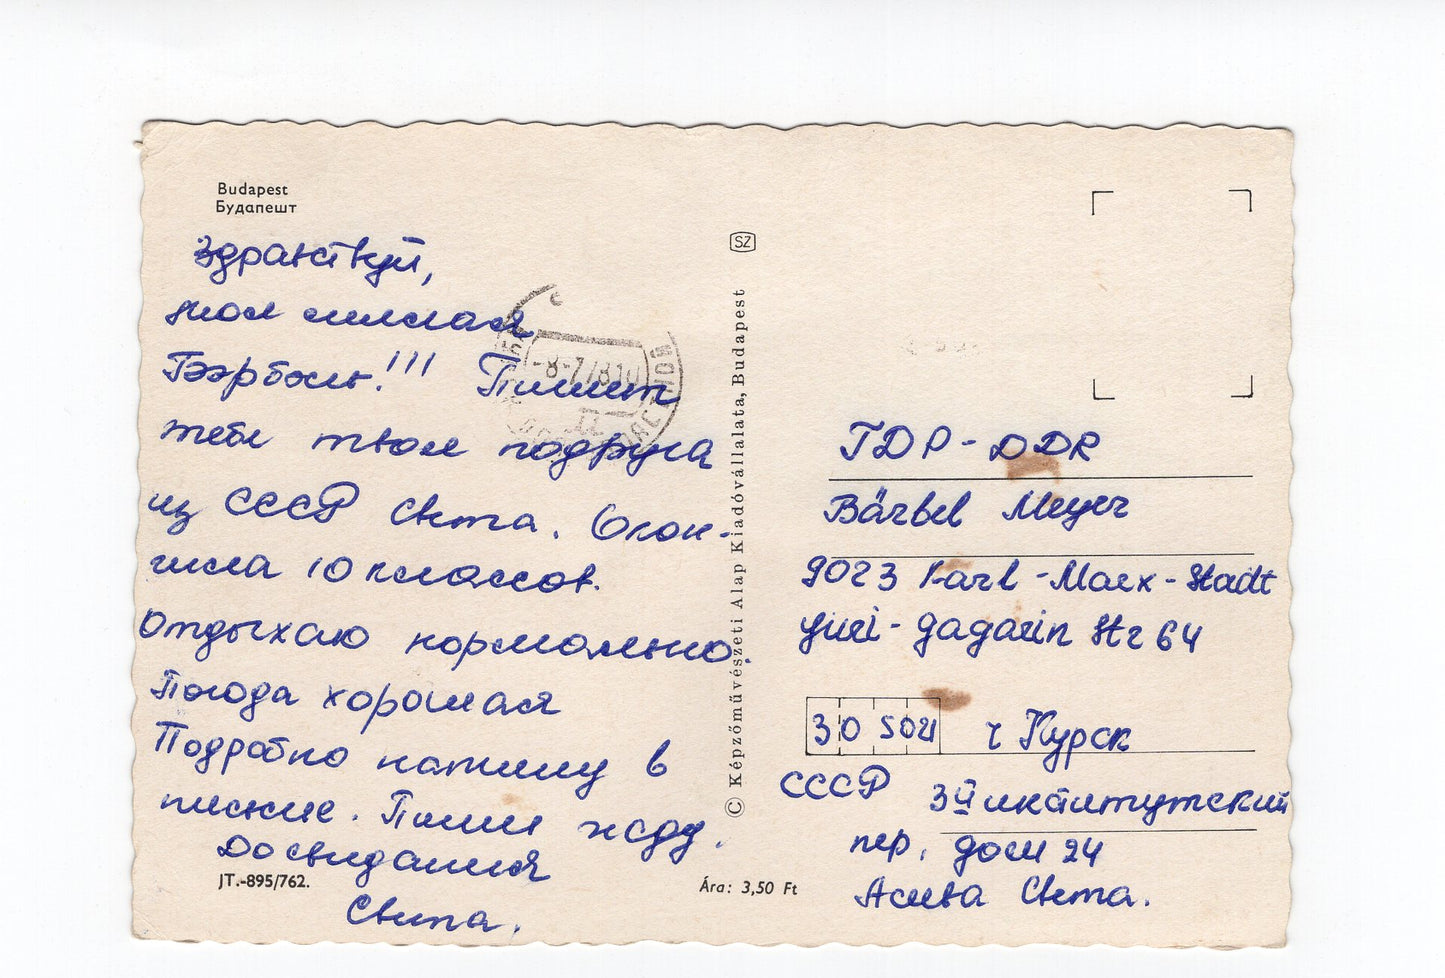 Budapest
Будапешт
Здравствуй,
моя милая
Бэрбэль!!! Пишет
тебе твоя подруга
из СССР Света. Окон-
чила 10 классов.
Отдыхаю нормально.
Погода хорошая
Подробно напишу в
письме. Пиши жду.
До свидания
Света.
JT.-895/762.
SZ
© Képzőművészeti Alap Kiadóvállalata, Budapest
Ára: 3,50 Ft
-8-7/78.10
ГДР - DDR
Bärbel Meyer
9023 Karl-Marx-Stadt
Yuri-gagarin Str 64
305021 г Курск
СССР 3й
пер. дом 24
Света.